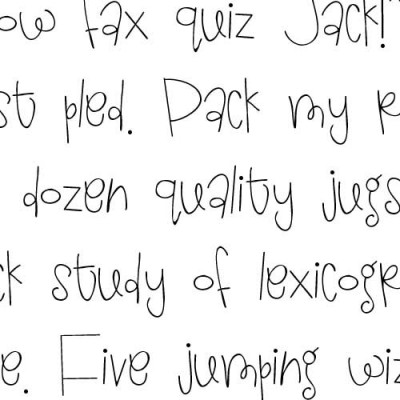 ow tax quiz Jack!
st pled. Pack my
dozen quality jugs
ck study of lexicogr
e. Five jumping wiz